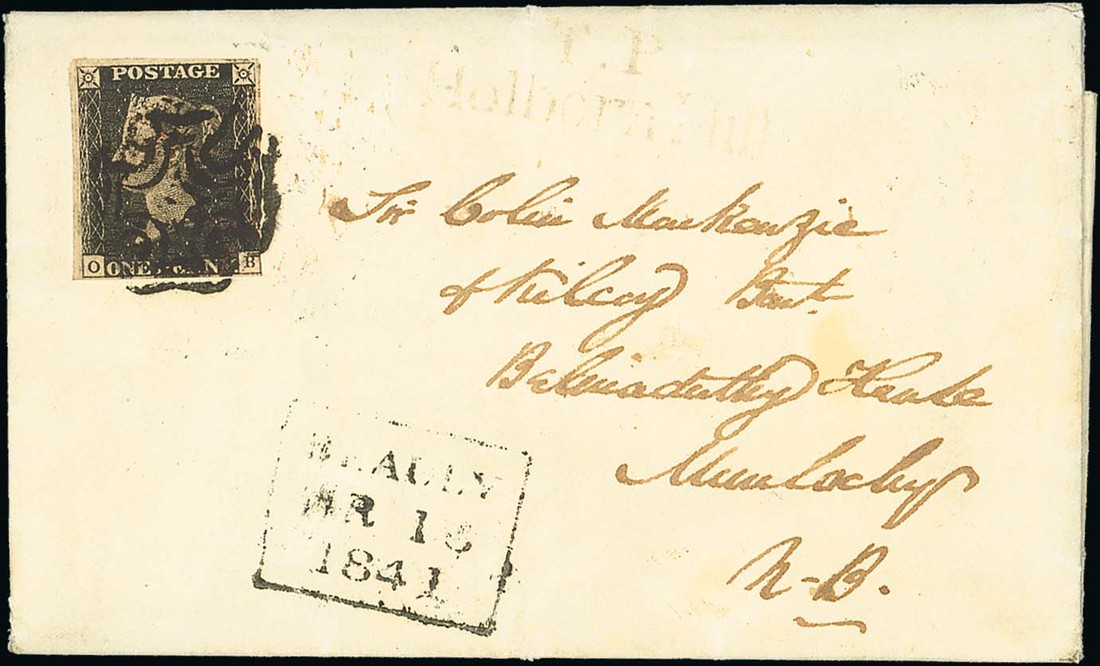 POSTAGE
O ONE PENNY B
T.P
Holborn
Sir Colin Mackenzie
of Kilcoy Bart.
Belmaduthy House
Munlochy
N-B.
BEAULY
MR 18
1841